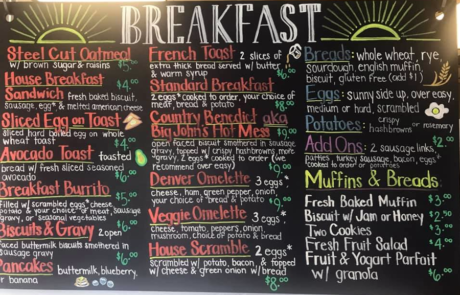 BREAKFAST
Steel Cut Oatmeal
w/ brown sugar & raisins $5.00
House Breakfast
Sandwich fresh baked biscuit,
sausage, egg* & melted american cheese
Sliced Egg on Toast
sliced hard boiled egg on whole
wheat toast $4.00
Avocado Toast toasted
bread w/ fresh sliced seasoned
avocado
Breakfast Burrito $5.00
filled w/ scrambled eggs* cheese,
potato & your choice of meat, sausage
gravy, or seasonal vegetables
Biscuits & Gravy 2 open
faced buttermilk biscuits smothered in
sausage gravy
Pancakes buttermilk, blueberry,
or banana
French Toast 2 slices of
extra thick bread served w/ butter
& warm syrup
Standard Breakfast
2 eggs* cooked to order, your choice of
meat, bread & potato $8.00
Country Benedict aka
Big John's Hot Mess $9.00
open faced biscuit smothered in sausage
gravy, topped w/ crispy hashbrowns, more
gravy, 2 eggs* cooked to order (we
recommend over easy)
Denver Omelette 3 eggs*
cheese, ham, green pepper, onion,
your choice of bread & potato
Veggie Omelette 3 eggs*
cheese, tomato, peppers, onion,
mushroom, choice of potato & bread
House Scramble 2 eggs*
scrambled w/ potato, bacon, & topped
w/ cheese & green onion w/ bread
$8.00
Breads: whole wheat, rye,
sourdough, english muffin,
biscuit, gluten free (add $1)
Eggs: sunny side up, over easy,
medium or hard, scrambled
Potatoes: crispy
hashbrown or rosemary
Add Ons: 2 sausage links,
patties, turkey sausage, bacon, eggs*
cooked to order or potatoes
Muffins & Breads:
Fresh Baked Muffin $3.00
Biscuit w/ Jam or Honey $2.00
Two Cookies
Fresh Fruit Salad
Fruit & Yogurt Parfait
w/ granola $6.00